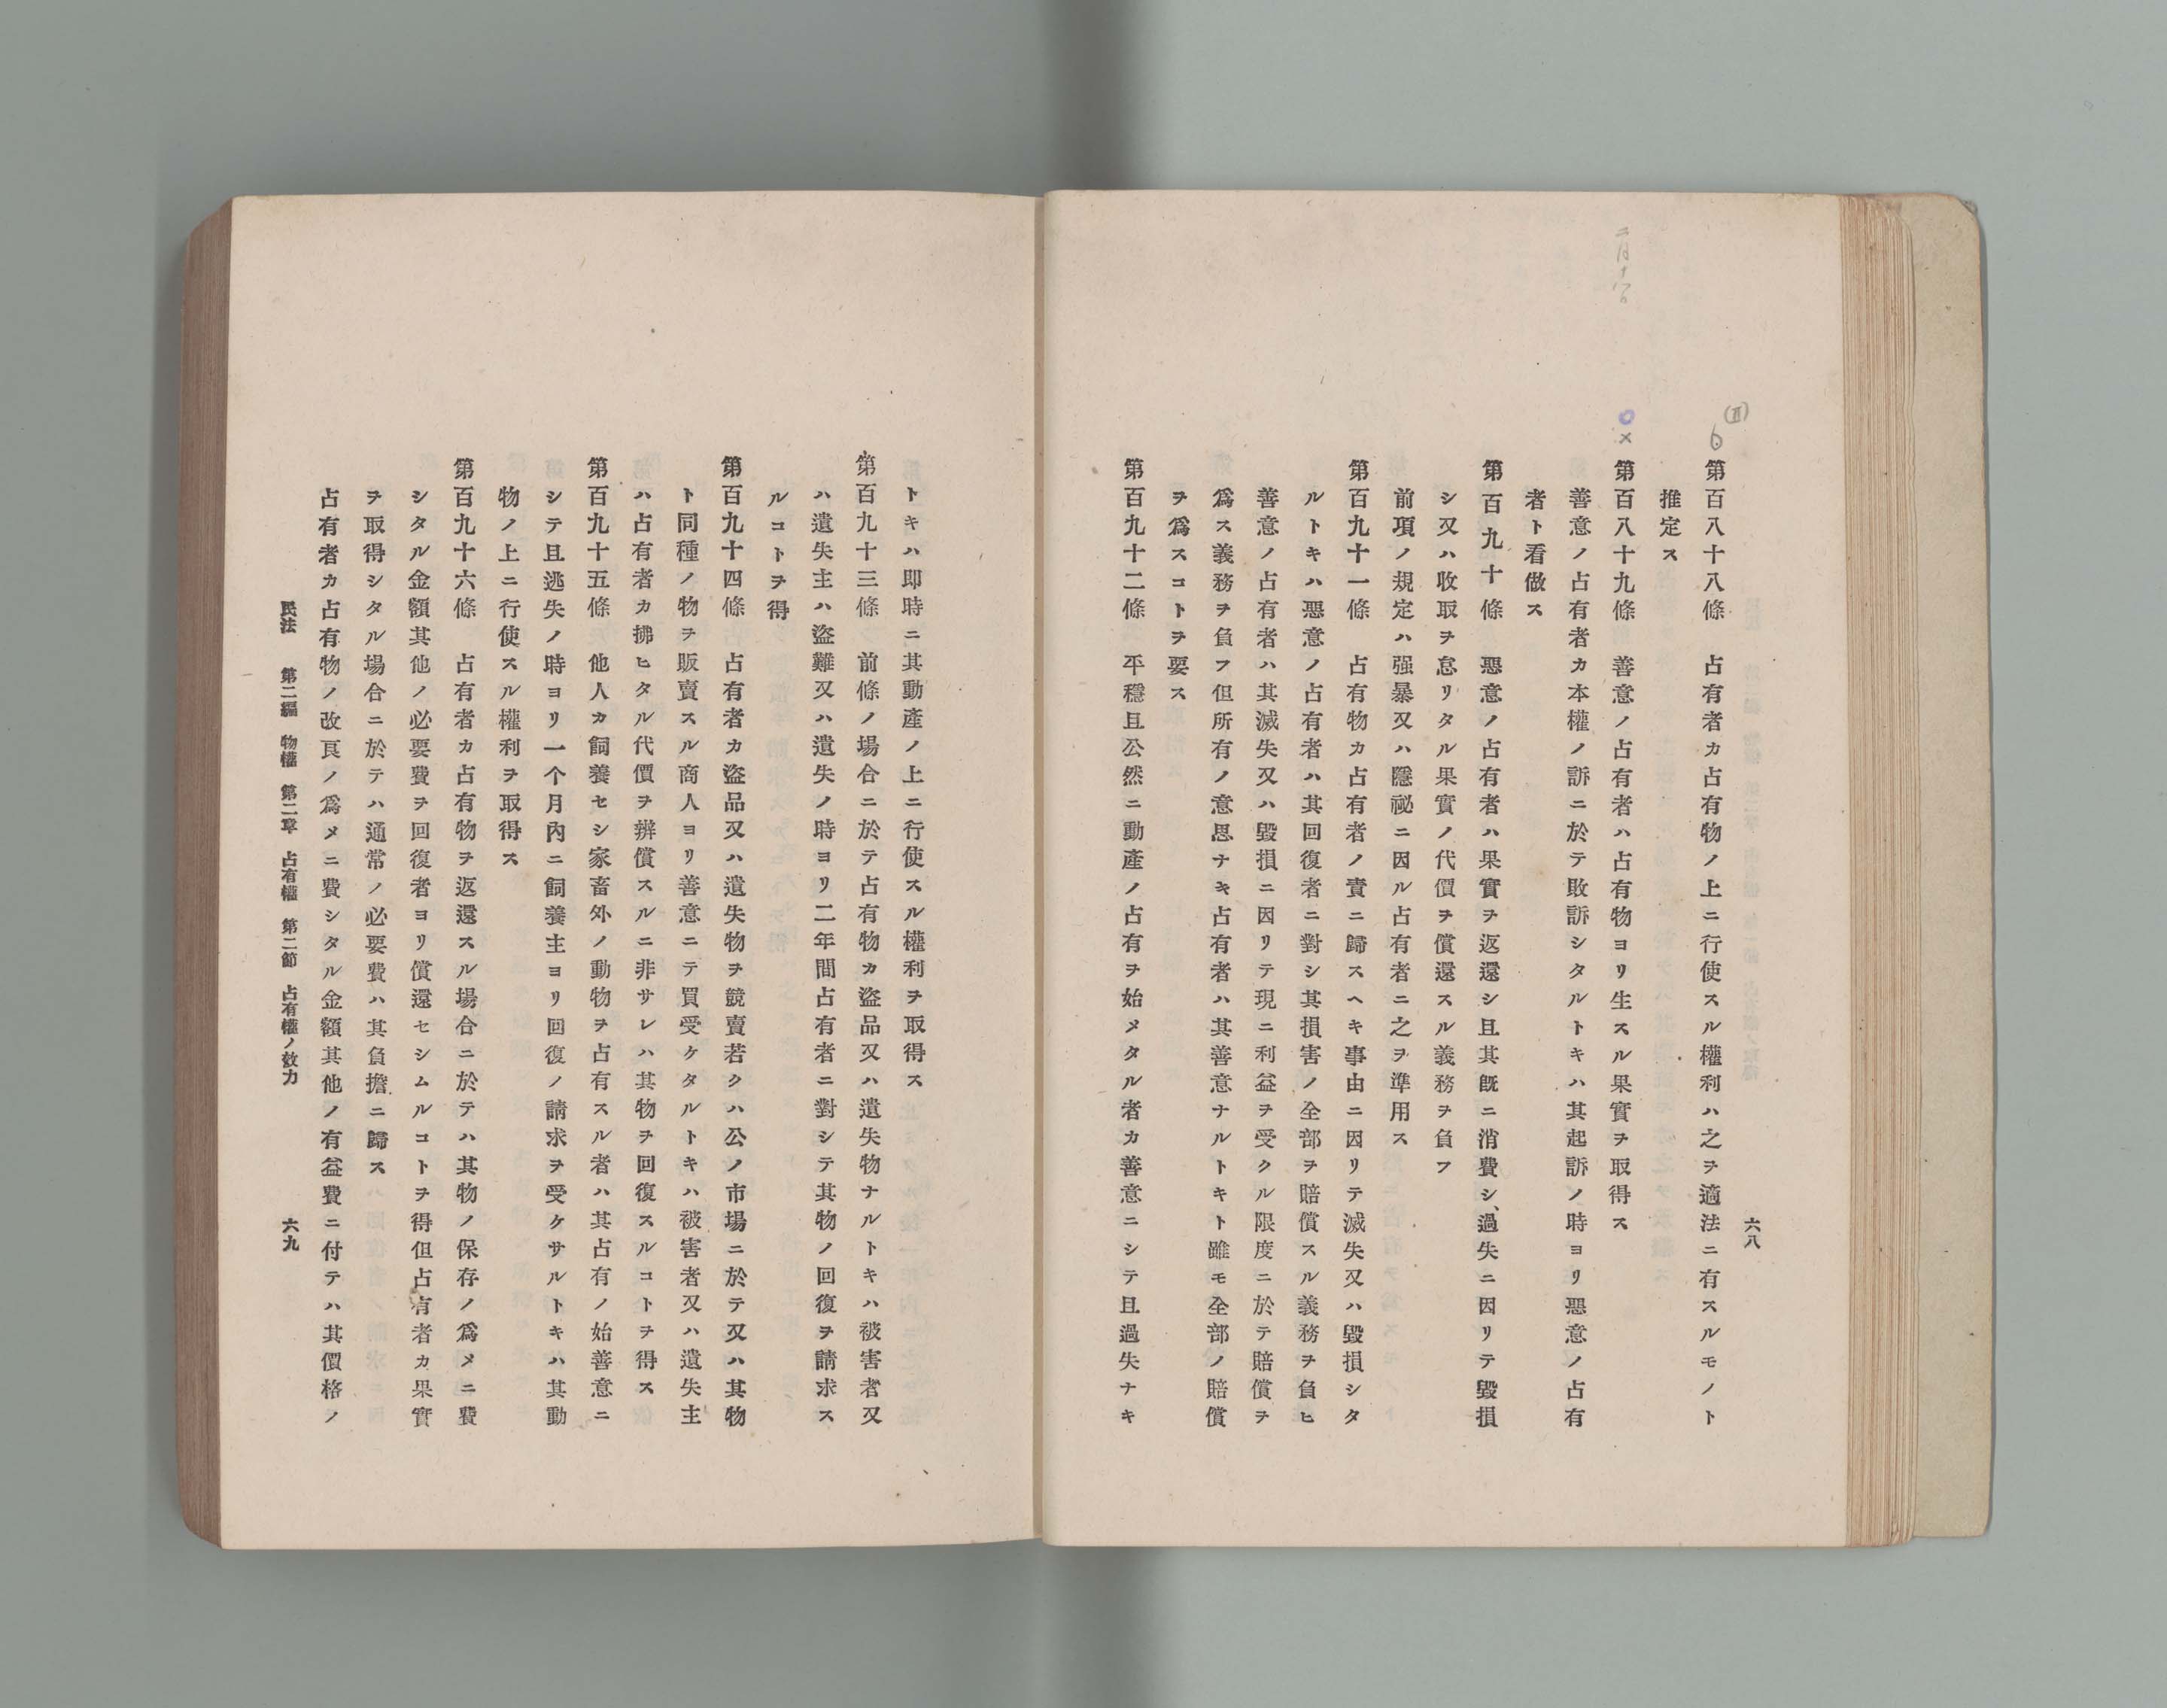 六八
(II)
6
第百八十八條　占有者カ占有物ノ上ニ行使スル權利ハ之ヲ適法ニ有スルモノト
推定ス
×
第百八十九條　善意ノ占有者ハ占有物ヨリ生スル果實ヲ取得ス
善意ノ占有者カ本權ノ訴ニ於テ敗訴シタルトキハ其起訴ノ時ヨリ惡意ノ占有
者ト看做ス
第百九十條　惡意ノ占有者ハ果實ヲ返還シ且其既ニ消費シ、過失ニ因リテ毀損
シ又ハ收取ヲ怠リタル果實ノ代價ヲ償還スル義務ヲ負フ
前項ノ規定ハ强暴又ハ隱祕ニ因ル占有者ニ之ヲ準用ス
第百九十一條　占有物カ占有者ノ責ニ歸スヘキ事由ニ因リテ滅失又ハ毀損シタ
ルトキハ惡意ノ占有者ハ其回復者ニ對シ其損害ノ全部ヲ賠償スル義務ヲ負ヒ
善意ノ占有者ハ其滅失又ハ毀損ニ因リテ現ニ利益ヲ受クル限度ニ於テ賠償ヲ
爲ス義務ヲ負フ但所有ノ意思ナキ占有者ハ其善意ナルトキト雖モ全部ノ賠償
ヲ爲スコトヲ要ス
第百九十二條　平穩且公然ニ動產ノ占有ヲ始メタル者カ善意ニシテ且過失ナキ
トキハ即時ニ其動產ノ上ニ行使スル權利ヲ取得ス
第百九十三條　前條ノ場合ニ於テ占有物カ盜品又ハ遺失物ナルトキハ被害者又
ハ遺失主ハ盜難又ハ遺失ノ時ヨリ二年間占有者ニ對シテ其物ノ回復ヲ請求ス
ルコトヲ得
第百九十四條　占有者カ盜品又ハ遺失物ヲ競賣若クハ公ノ市場ニ於テ又ハ其物
ト同種ノ物ヲ販賣スル商人ヨリ善意ニテ買受ケタルトキハ被害者又ハ遺失主
ハ占有者カ拂ヒタル代價ヲ辨償スルニ非サレハ其物ヲ回復スルコトヲ得ス
第百九十五條　他人カ飼養セシ家畜外ノ動物ヲ占有スル者ハ其占有ノ始善意ニ
シテ且逃失ノ時ヨリ一个月內ニ飼養主ヨリ回復ノ請求ヲ受ケサルトキハ其動
物ノ上ニ行使スル權利ヲ取得ス
第百九十六條　占有者カ占有物ヲ返還スル場合ニ於テハ其物ノ保存ノ爲メニ費
シタル金額其他ノ必要費ヲ回復者ヨリ償還セシムルコトヲ得但占有者カ果實
ヲ取得シタル場合ニ於テハ通常ノ必要費ハ其負擔ニ歸ス
占有者カ占有物ノ改良ノ爲メニ費シタル金額其他ノ有益費ニ付テハ其價格ノ
民法　第二編　物權　第二章　占有權　第二節　占有權ノ效力　六九